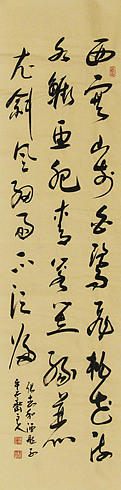 西塞山前白鹭飞桃花流
水鳜鱼肥青箬笠绿蓑
衣斜风细雨不须归
张志和渔歌子